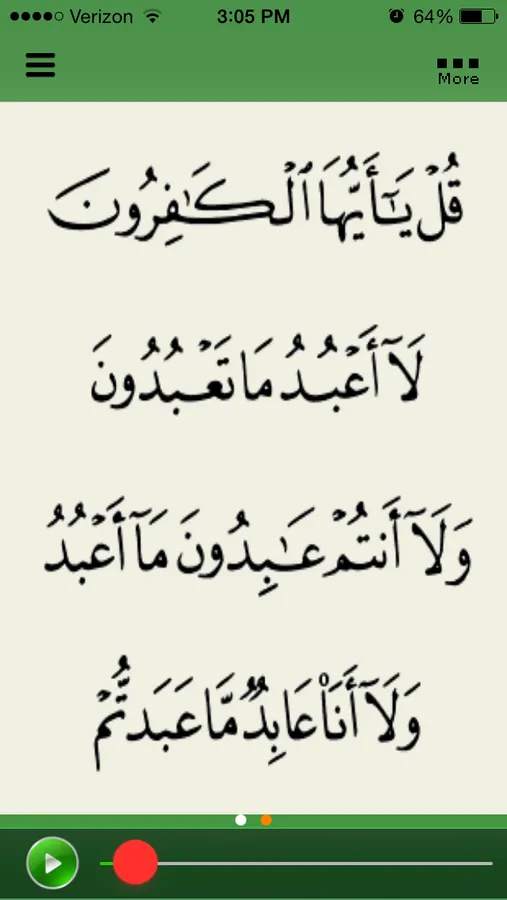 Verizon 3:05 PM 64%
More
قُلْ يَـٰٓأَيُّهَا ٱلْكَـٰفِرُونَ
لَآ أَعْبُدُ مَا تَعْبُدُونَ
وَلَآ أَنتُمْ عَـٰبِدُونَ مَآ أَعْبُدُ
وَلَآ أَنَا۠ عَابِدٌ مَّا عَبَدتُّمْ